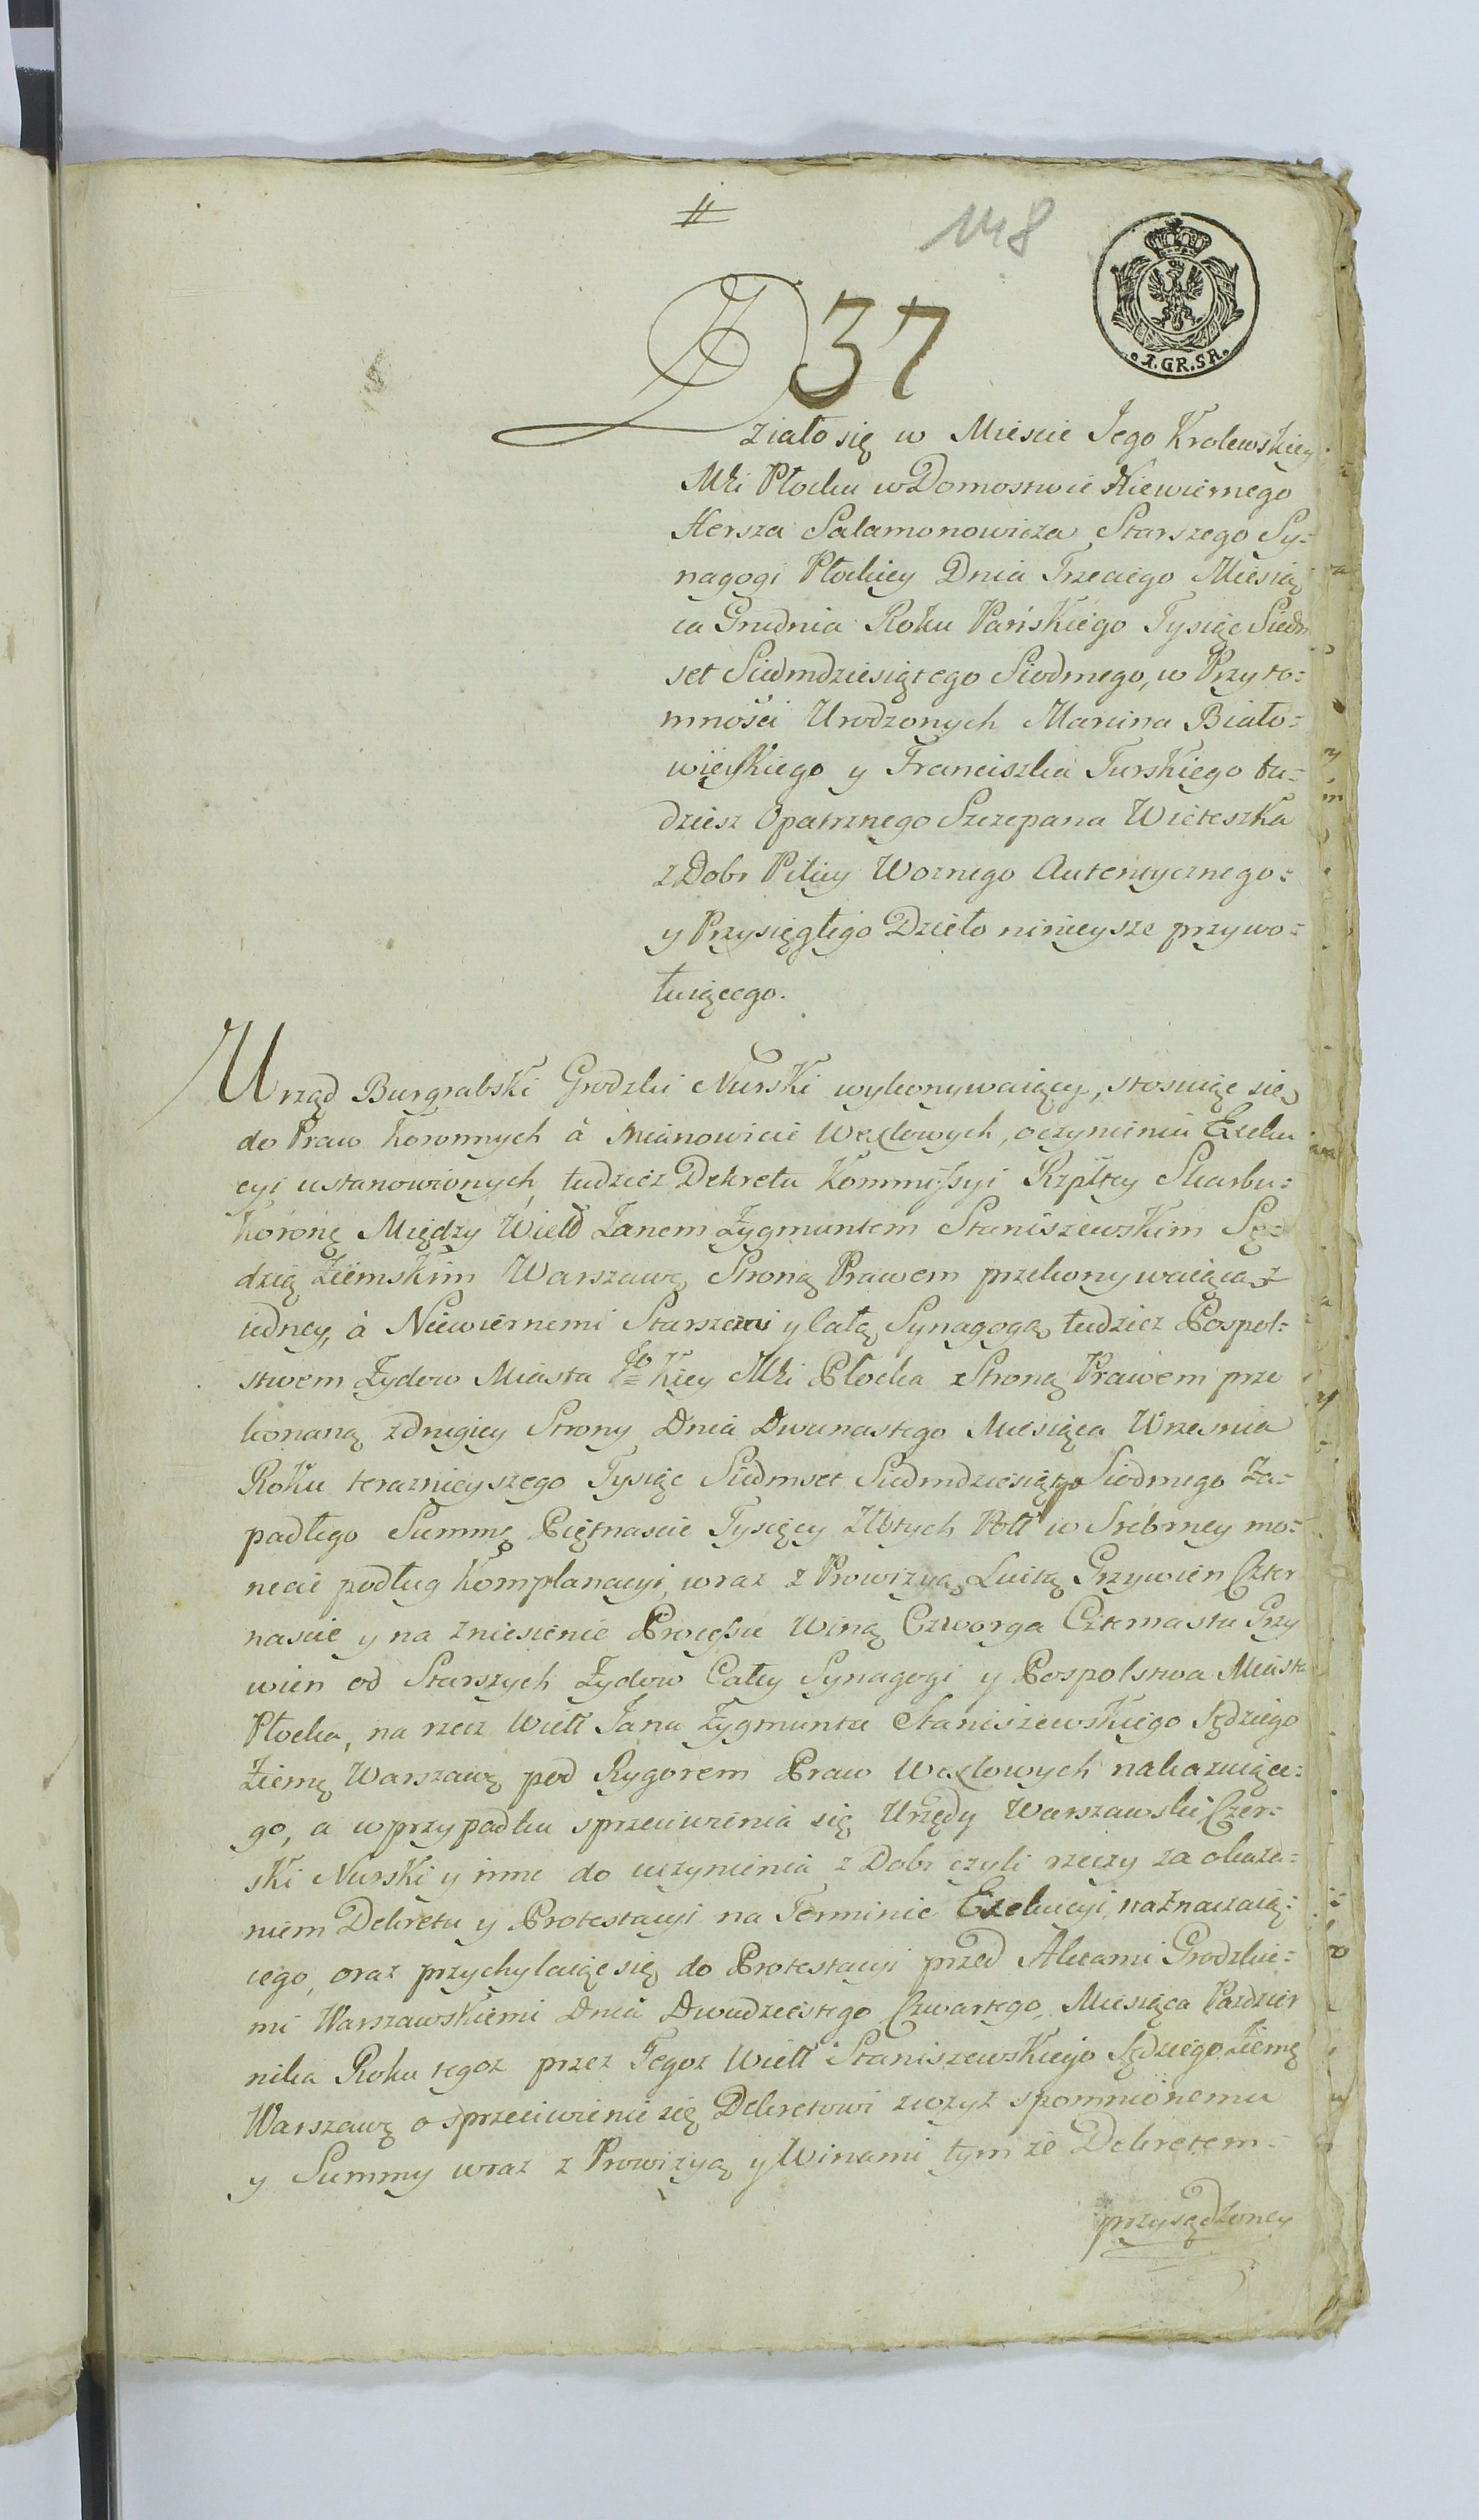 #
148
37
.1.GR.SR.
Działo się w Mieście Jego Krolewskiey
Mći Płocku w Domostwie Niewiernego
Hersza Salamonowicza Starszego Sy=
nagogi Płockiey Dnia Trzeciego Miesią
ca Grudnia Roku Pańskiego Tysiąc Siedm
set Siedmdziesiątego Siodmego, w Przyto=
mności Urodzonych Marcina Biało=
wieyskiego y Franciszka Turskiego tu=
dziesz Opatrznego Szczepana Wieteszka
z Dobr Pilicy Woznego Autentycznego=
y Przysięgłego Dzieło ninieysze przywo=
łuiącego.
Urząd Burgrabski Grodzki Nurski wykonywaiący, stosuiąc się
do Praw koronnych à mianowicie Wexlowych, o czynieniu Exeku
cyi ustanowionych, tudziez Dekretu Kommissyi Rzpltey Skarbu=
Koronę Między Wiel Janem Zygmuntem Staniszewskim Sę=
dzią Ziemskim Warszawę Stroną Prawem przekonywaiącą z
iedney, à Niewiernemi Starszemi y Całą Synagogą tudziez Pospol=
stwem Zydow Miasta Jo Kiey Mći Płocka Stroną Prawem prze
konaną z drugiey Strony Dnia Dwunastego Miesiąca Wrzesnia
Roku teraznieyszego Tysiąc Siedmset Siedmdziesiątgo Siodmego Za=
padłego Summę Piętnascie Tysięcy Złłotych Poll w Srebrney mo=
necie podług Komplanacyi, wraz z Prowizyą Luitą Grzywien Czter
nascie y na zniesienie Processu Winą Czworga Czternastu Grzy
wien od Starszych Zydow Całey Synagogi y Pospolstwa Miasta
Płocka, na rzecz Wiell Jana Zygmunta Staniszewskiego Sędziego
Ziemę Warszawę pod Rygorem Praw Wexlowych nakazuiące=
go, a w przypadku sprzeciwienia się Urzędy Warszawski Czer=
ski Nurski y inne do uczynienia z Dobr czyli rzeczy za okaza=
niem Dekretu y Protestacyi na Terminie Exekucyi, naznaczaią=
cego, oraz przychylaiąc się do Protestacyi przed Aktami Grodzkie=
mi Warszawskiemi Dnia Dwudziestego Czwartego Miesiąca Pazdzier
nika Roku tegoz przez Tegoz Wiell Staniszewskiego Sędziego Ziemę
Warszawę o sprzeciwienie się Dekretowi zwyż spomnionemu
y Summy wraz z Prowizyą y Winami tym ze Dekretem=
przysądzoney